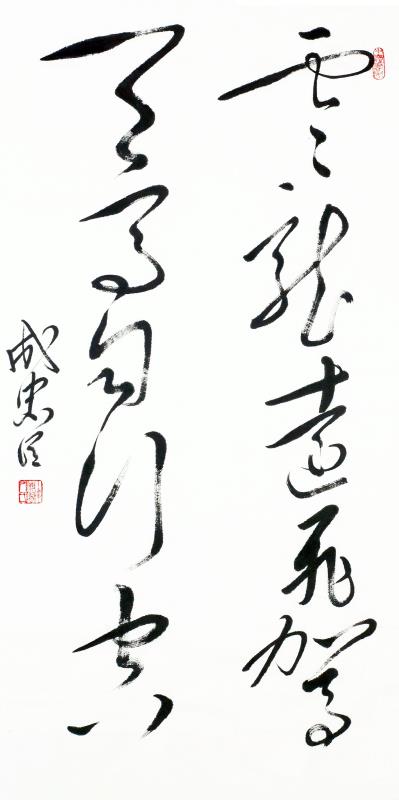 雲龍遠飛駕
天馬自行空
成忠臣